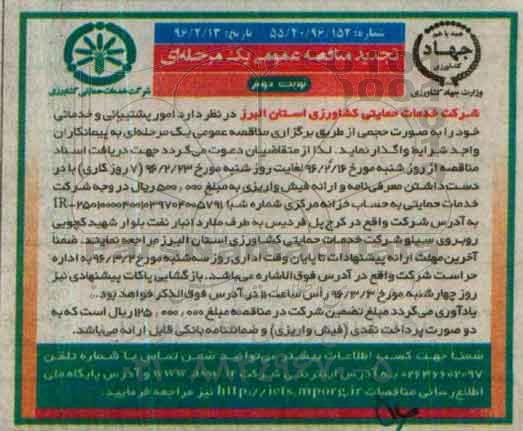 شماره: ۵۵/۲۰/۹۶/۱۵۲ تاریخ: ۹۶/۲/۱۳
تجدید مناقصه عمومی یک مرحله‌ای
نوبت دوم
همه با هم
جهاد
کشاورزی
وزارت جهاد کشاورزی
شرکت خدمات حمایتی کشاورزی
شرکت خدمات حمایتی کشاورزی استان البرز در نظر دارد امور پشتیبانی و خدماتی
خود را به صورت حجمی از طریق برگزاری مناقصه عمومی یک مرحله‌ای به پیمانکاران
واجد شرایط واگذار نماید. لذا از متقاضیان دعوت می‌گردد جهت دریافت اسناد
مناقصه از روز شنبه مورخ ۹۶/۲/۱۶ لغایت روز شنبه مورخ ۹۶/۲/۲۳ (۷ روز کاری) با در
دست داشتن معرفی‌نامه و ارائه فیش واریزی به مبلغ ۵۰۰,۰۰۰ ریال در وجه شرکت
خدمات حمایتی به حساب خزانه مرکزی شماره شبا
به آدرس شرکت واقع در کرج پل فردیس به طرف ملارد انبار نفت بلوار شهید کچویی
روبروی سیلو شرکت خدمات حمایتی کشاورزی استان البرز مراجعه نمایند. ضمنا
آخرین مهلت ارائه پیشنهادات تا پایان وقت اداری روز سه‌شنبه مورخ ۹۶/۳/۲ به اداره
حراست شرکت واقع در آدرس فوق‌الاشاره می‌باشد. بازگشایی پاکات پیشنهادی نیز
روز چهارشنبه مورخ ۹۶/۳/۳ رأس ساعت ۱۱ در آدرس فوق‌الذکر خواهد بود.
یادآوری می‌گردد مبلغ تضمین شرکت در مناقصه مبلغ ۱۲۵,۰۰۰,۰۰۰ ریال است که به
دو صورت پرداخت نقدی (فیش واریزی) و ضمانتنامه بانکی قابل ارائه می‌باشد.
ضمنا جهت کسب اطلاعات بیشتر می‌توانید ضمن تماس با شماره تلفن
۰۲۶۳۶۶۰۲۰۹۷ به آدرس اینترنتی شرکت و آدرس پایگاه ملی
اطلاع رسانی مناقصات http://iets.mporg.ir نیز مراجعه فرمایید.